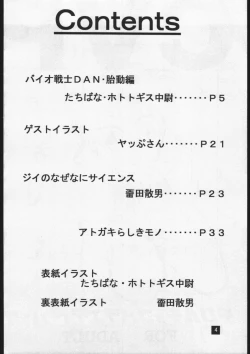 Contents
バイオ戦士DAN・胎動編
たちばな・ホトトギス中尉・・・・・・・P5
ゲストイラスト
ヤッぷさん・・・・・・・P21
ジイのなぜなにサイエンス
蕾田散男・・・・・・・P23
アトガキらしきモノ・・・・・・・P33
表紙イラスト
たちばな・ホトトギス中尉
裏表紙イラスト 蕾田散男
4